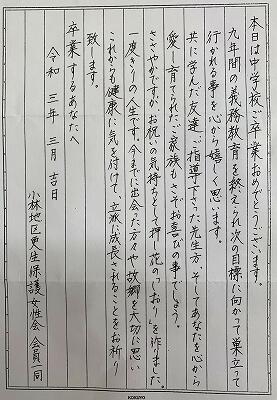 本日は中学校ご卒業おめでとうございます。
九年間の義務教育を終えられ次の目標に向かって巣立って
行かれる事を心から嬉しく思います。
共に学んだ友達、ご指導下さった先生方、そしてあなたを心から
愛し育てられたご家族もさぞお喜びの事でしょう。
ささやかですが、お祝いの気持ちとして押し花の「しおり」を作りました。
一度きりの人生です。今までに出会った方々や故郷を大切に思い
これからも健康に気を付けて、立派に成長されることをお祈り
致します。
卒業するあなたへ
令和三年三月吉日
小林地区更生保護女性会 会員一同
KOKUYO